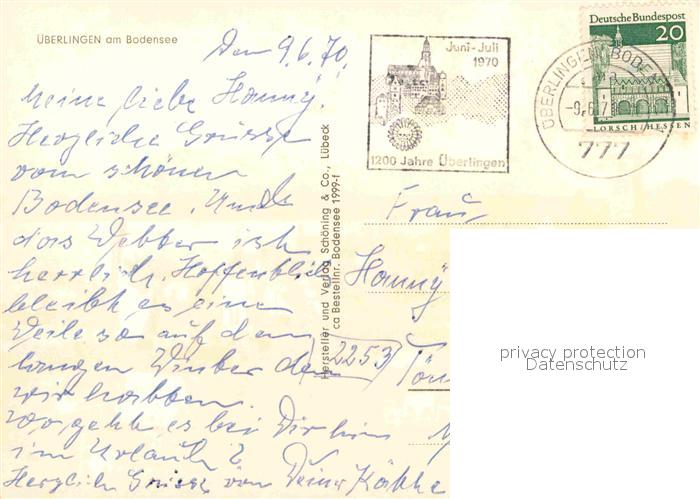 ÜBERLINGEN am Bodensee
Den 9.6.70.
Meine liebe Hanny.
Herzliche Grüsse
vom schönen
Bodensee. Und
das Wetter ist
herrlich. Hoffentlich
bleibt es eine
Weile so auf den
langen Winter den
wir hatten.
Wo geht es bei Dir hin
im Urlaub?
Herzliche Grüsse von Deiner Käthe
Hersteller und Verlag Schöning & Co., Lübeck
ca Bestellnr. Bodensee 1999-f
Juni-Juli
1970
1200 Jahre Überlingen
ÜBERLINGEN, BODENSEE
-9.6.7
777
Deutsche Bundespost
20
LORSCH/HESSEN
Frau
Hanny
2253 Tön
privacy protection
Datenschutz